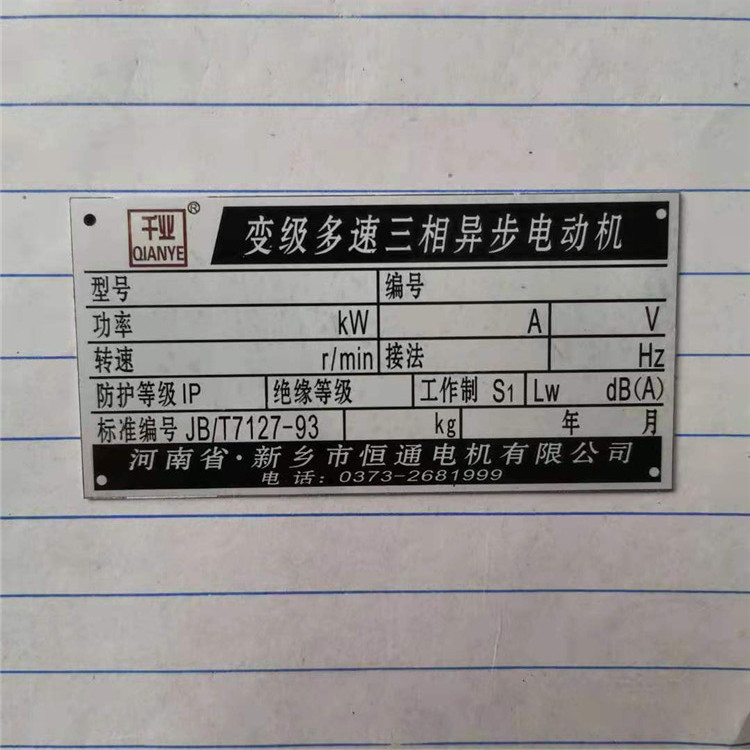 千业 ® 变级多速三相异步电动机
QIANYE
型号 编号
功率 kW A V
转速 r/min 接法 Hz
防护等级 IP 绝缘等级 工作制 S1 Lw dB(A)
标准编号 JB/T7127-93 kg 年 月
河南省·新乡市恒通电机有限公司
电话:0373-2681999